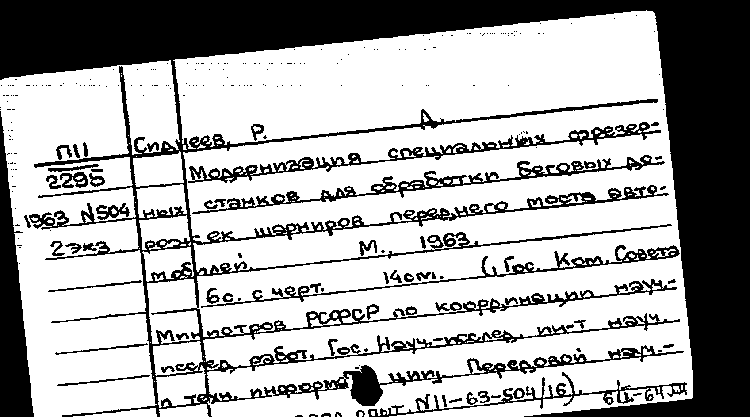 П11
2295
1963 N504
2 экз
Сиднеев, Р. А.
Модернизация специальных фрезер-
ных станков для обработки беговых до-
рожек шарниров переднего моста авто-
мобилей. М., 1963.
6с. с черт. 14см. (, Гос. Ком. Совета
Министров РСФСР по координации науч.-
исслед. работ. Гос. Науч.-исслед. ин-т науч.
и техн. информации. Передовой науч.-
опыт. N11-63-504/16). 6/I-64